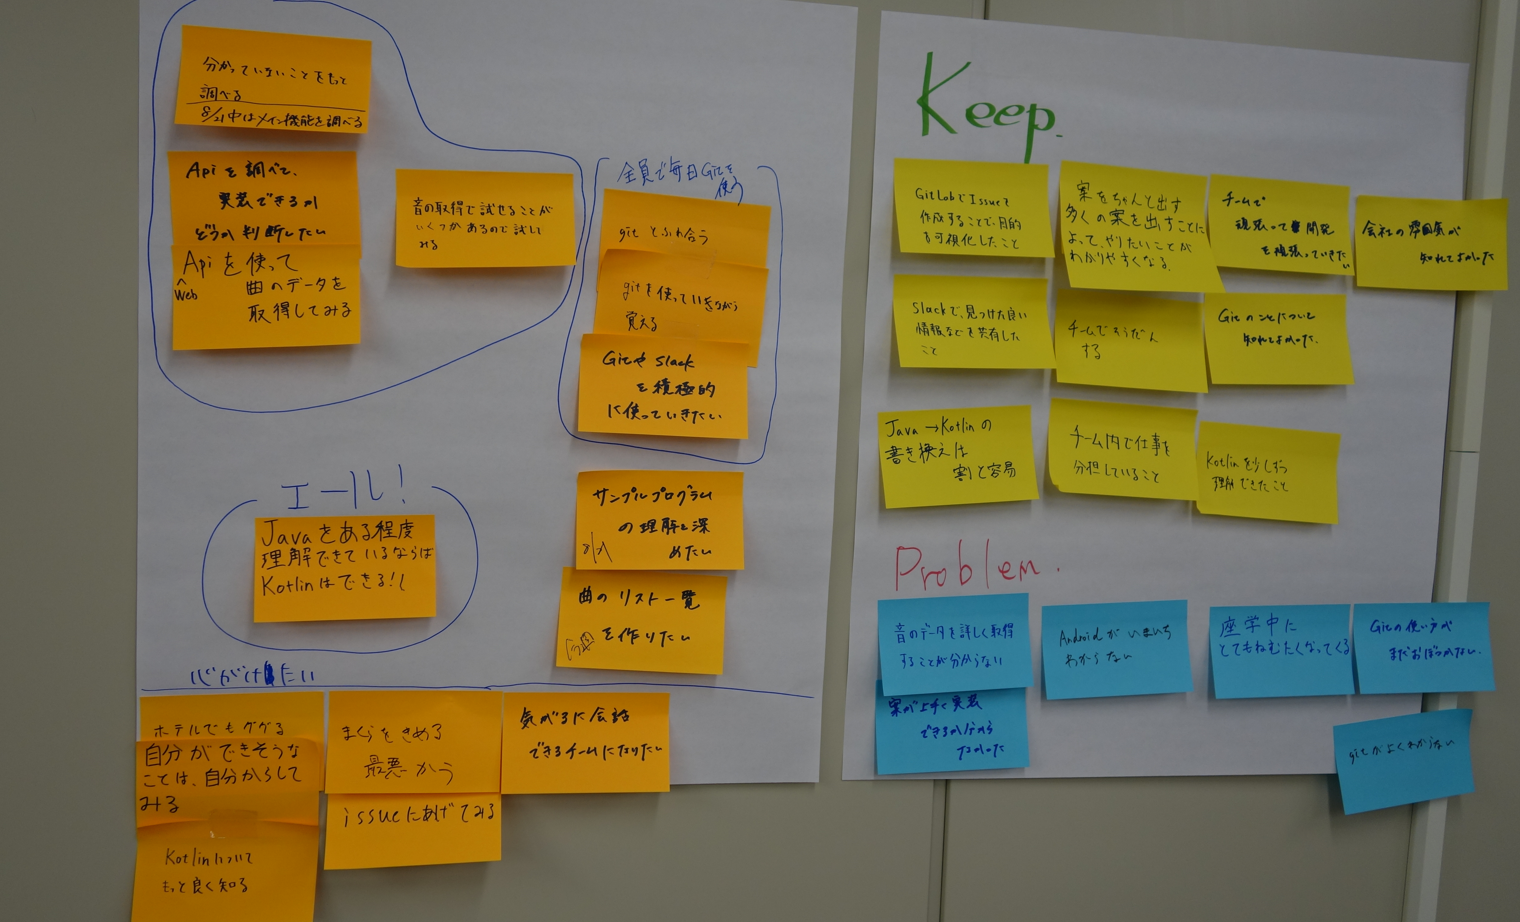 分かっていないことをもっと
調べる
8/21中はメイン機能を調べる
Apiを調べて、
実装できるか
どうか判断したい
Apiを使って
Web
曲のデータを
取得してみる
音の取得で試せることが
いくつかあるので試して
みる
全員で毎日Gitを
使う
gitとふれ合う
gitを使っていきながら
覚える
GitやSlack
を積極的
に使っていきたい
エール!
Javaをある程度
理解できているならば
Kotlinはできる!
サンプルプログラム
の理解を深
めたい
曲のリスト一覧
を作りたい
心がけたい
ホテルでもググる
自分ができそうな
ことは、自分からして
みる
Kotlinについて
もっと良く知る
まくらをきめる
最悪かう
issueにあげてみる
気がるに会話
できるチームになりたい
Keep.
GitLabでIssueを
作成することで目的
を可視化したこと
案をちゃんと出す
多くの案を出すことに
よって、やりたいことが
わかりやすくなる。
チームで
頑張って開発
を頑張っていきたい
会社の雰囲気が
知れてよかった
Slackで、見つけた良い
情報などを共有した
こと
チームでそうだん
する
Gitのことについて
知れてよかった。
Java→Kotlinの
書き換えは
割と容易
チーム内で仕事を
分担していること
Kotlinを少しずつ
理解できたこと
Problem.
音のデータを詳しく取得
することが分からない
案が上手く実装
できるか分から
なかった
Androidがいまいち
わからない
座学中に
とてもねむたくなってくる
Gitの使い方が
まだおぼつかない。
gitがよくわからない